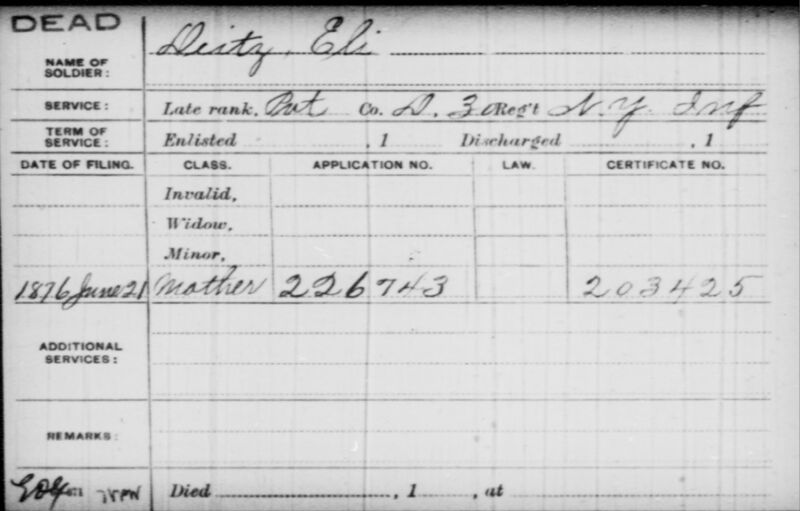 DEAD
NAME OF SOLDIER: Deitz, Eli
SERVICE: Late rank, Pvt Co. D, 30 Reg't N.Y. Inf
TERM OF SERVICE: Enlisted , 1 Discharged , 1
DATE OF FILING. CLASS. APPLICATION NO. LAW. CERTIFICATE NO.
Invalid,
Widow,
Minor,
1876 June 21 Mother 226743 203425
ADDITIONAL SERVICES:
REMARKS:
Died , 1 , at